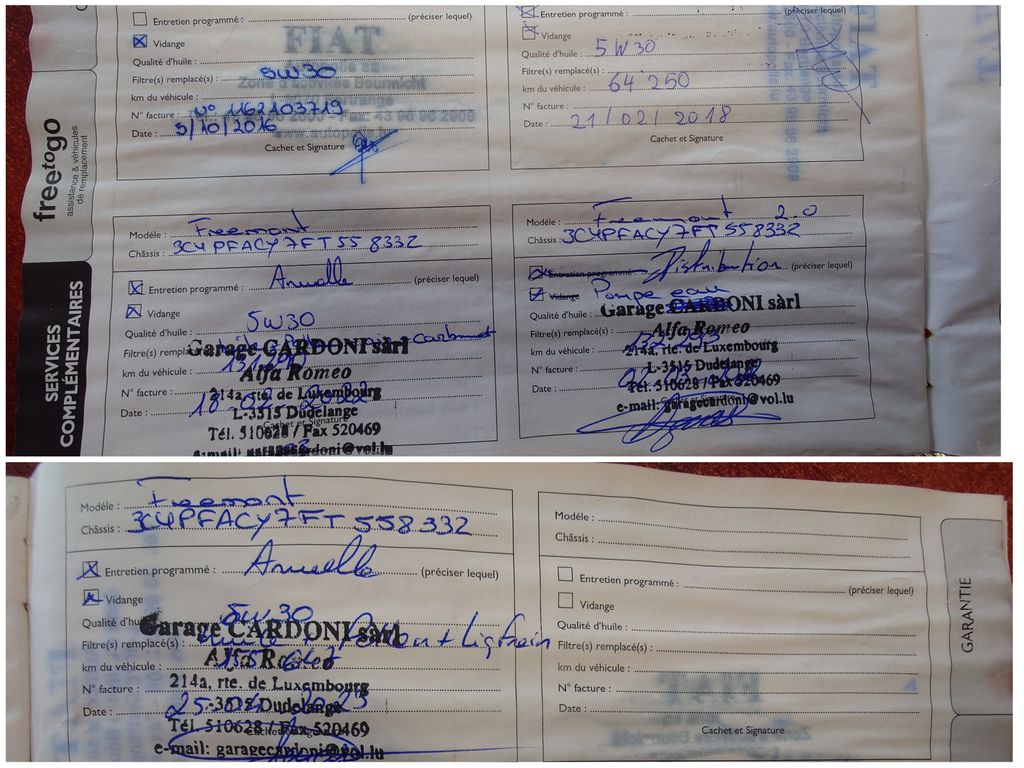 Entretien programmé : (préciser lequel)
Vidange
FIAT
Qualité d'huile :
Filtre(s) remplacé(s) : 5W30
km du véhicule :
N° facture : N° 1162103719
Date : 5/10/2016
Cachet et Signature
(préciser lequel)
Vidange
Qualité d'huile : 5W30
Filtre(s) remplacé(s) :
km du véhicule : 64 250
N° facture :
Date : 21/02/2018
Cachet et Signature
freetogo
assistance & véhicules
de remplacement
SERVICES
COMPLÉMENTAIRES
Modèle : Freemont
Châssis : 3C4PFACY7FT558332
Entretien programmé : Annuelle (préciser lequel)
Vidange
Qualité d'huile : 5W30
Garage CARDONI sàrl
Alfa Romeo
km du véhicule :
N° facture :
214a, rte. de Luxembourg
Date :
L-3515 Dudelange
Cachet et Signature
Tél. 510628 / Fax 520469
Modèle : Freemont 2.0
Châssis : 3C4PFACY7FT558332
Entretien programmé : Distribution (préciser lequel)
Vidange Pompe eau
Qualité d'huile :
Garage CARDONI sàrl
Alfa Romeo
Filtre(s) remplacé(s) :
km du véhicule :
214a, rte. de Luxembourg
N° facture :
L-3515 Dudelange
Date :
Tél. 510628 / Fax 520469
e-mail: garagecardoni@vol.lu
Modèle : Freemont
Châssis : 3C4PFACY7FT558332
Entretien programmé : Annuelle (préciser lequel)
Vidange
Qualité d'huile : 5W30
Garage CARDONI sàrl
Filtre(s) remplacé(s) :
Alfa Romeo
km du véhicule :
214a, rte. de Luxembourg
N° facture :
Dudelange
Date :
Tél. 510628 / Fax 520469
e-mail: garagecardoni@vol.lu
Modèle :
Châssis :
Entretien programmé : (préciser lequel)
Vidange
Qualité d'huile :
Filtre(s) remplacé(s) :
km du véhicule :
N° facture :
Date :
Cachet et Signature
GARANTIE